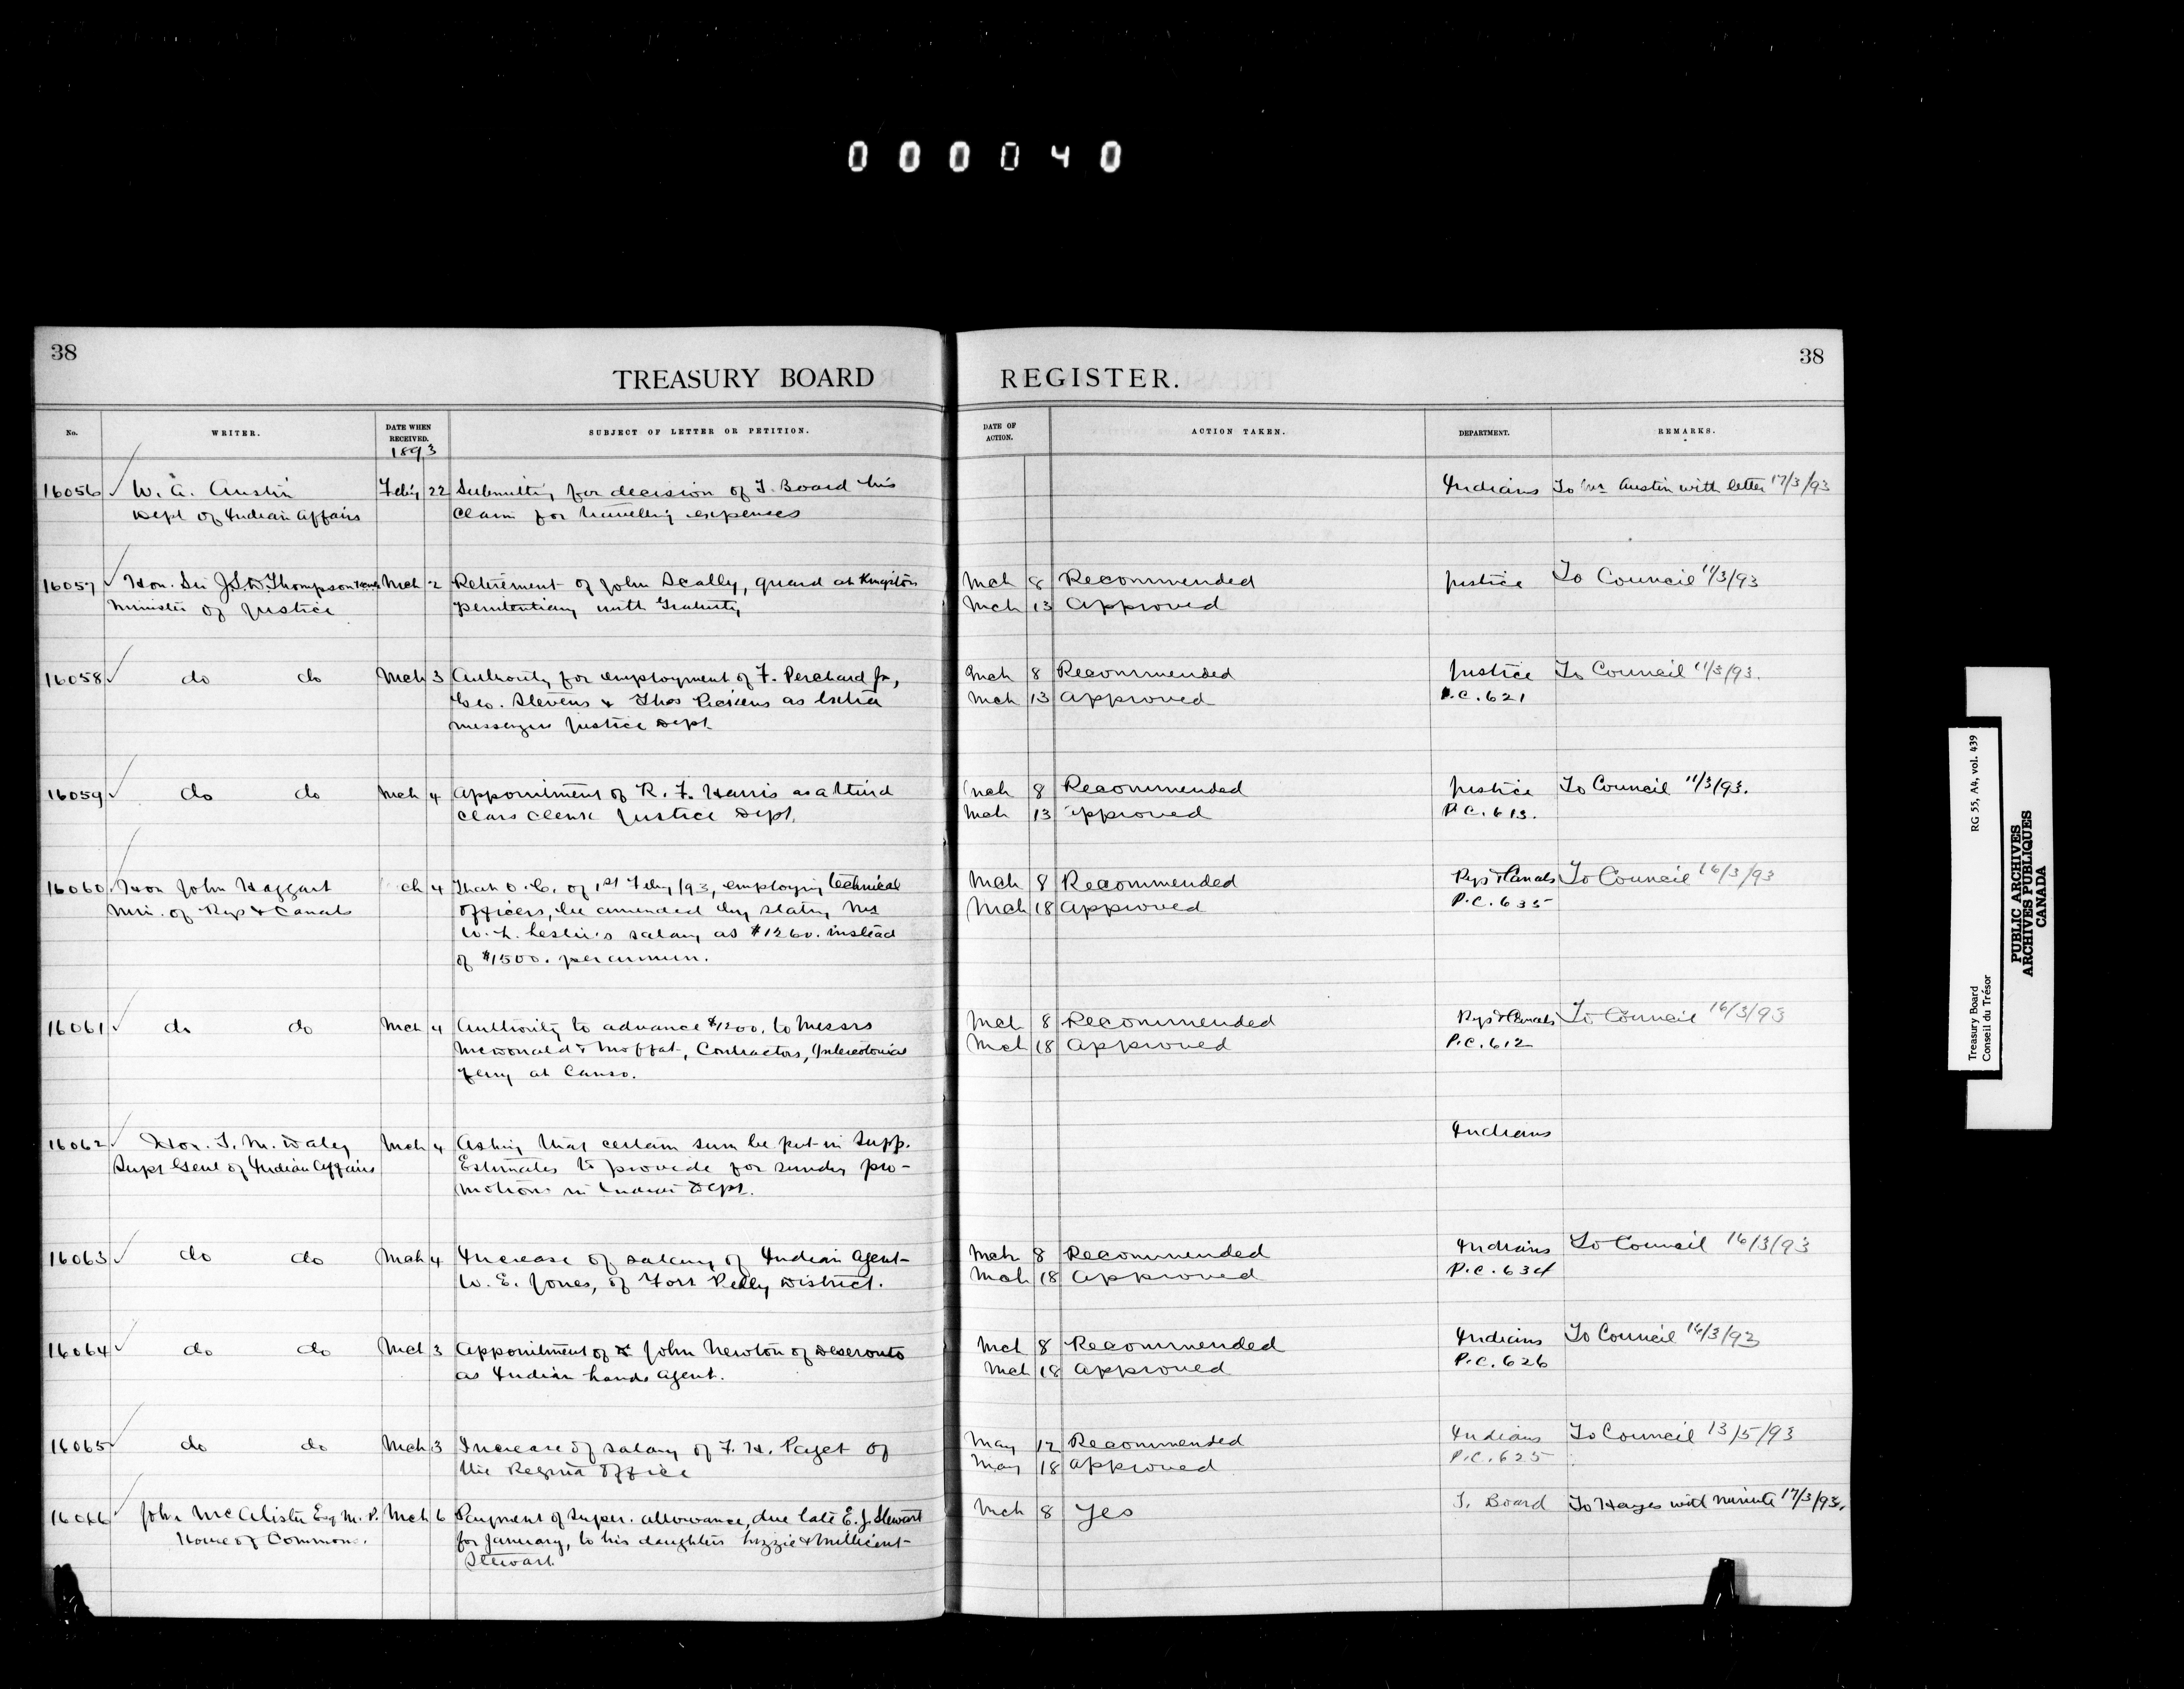 000040
38
38
TREASURY BOARD REGISTER.
No. WRITER. DATE WHEN RECEIVED. SUBJECT OF LETTER OR PETITION. DATE OF ACTION. ACTION TAKEN. DEPARTMENT. REMARKS.
1893
16056 W. A. Austin Feby 22 Submitting for decision of T. Board his Indians To Mr Austin with letter 17/3/93
Dept of Indian Affairs claim for travelling expenses
16057 Hon. Sir J.S.D. Thompson Mch 2 Retirement of John Scally, guard at Kingston Mch 8 Recommended Justice To Council 11/3/93
Minister of Justice penitentiary with Gratuity Mch 13 Approved
16058 do do Mch 3 Authority for employment of F. Perchard Jr, Mch 8 Recommended Justice To Council 11/3/93.
Geo. Stevens & Thos as extra Mch 13 Approved P.C. 621
messengers Justice Dept.
16059 do do Mch 4 Appointment of R. F. Harris as a third Mch 8 Recommended Justice To Council 11/3/93.
class clerk Justice Dept. Mch 13 Approved P.C. 613.
16060 Hon John Haggart ch 4 That O.C. of 1st Feby /93, employing technical Mch 8 Recommended Rys & Canals To Council 16/3/93
Min. of Rys & Canals officers, be amended by stating Mr Mch 18 Approved P.C. 635
W. L. Leslie's salary as $1260. instead
of $1500. per annum.
16061 do do Mch 4 Authority to advance $1200. to Messrs Mch 8 Recommended Rys & Canals To Council 16/3/93
McDonald & Moffat, Contractors, Intercolonial Mch 18 Approved P.C. 612
ferry at Canso.
16062 Hon. T. M. Daly Mch 4 Asking that certain sum be put in Supp. Indians
Supt Genl of Indian Affairs Estimates to provide for sundry pro-
motions in Indian Dept.
16063 do do Mch 4 Increase of salary of Indian Agent Mch 8 Recommended Indians To Council 16/3/93
W. E. Jones, of Fort Pelly District. Mch 18 Approved P.C. 634
16064 do do Mch 3 Appointment of John Newton of Deseronto Mch 8 Recommended Indians To Council 16/3/93
as Indian Lands Agent. Mch 18 Approved P.C. 626
16065 do do Mch 3 Increase of salary of F. H. Paget of May 12 Recommended Indians To Council 13/5/93
the Regina Office May 18 Approved P.C. 625
16066 John McAlister Esq M.P. Mch 6 Payment of super. allowance, due late E. J. Stewart Mch 8 Yes T. Board To Hayes with minute 17/3/93.
House of Commons. for January, to his daughters Lizzie & Millicent
Stewart.
RG 55, A4, vol. 439
Treasury Board
Conseil du Trésor
PUBLIC ARCHIVES
ARCHIVES PUBLIQUES
CANADA